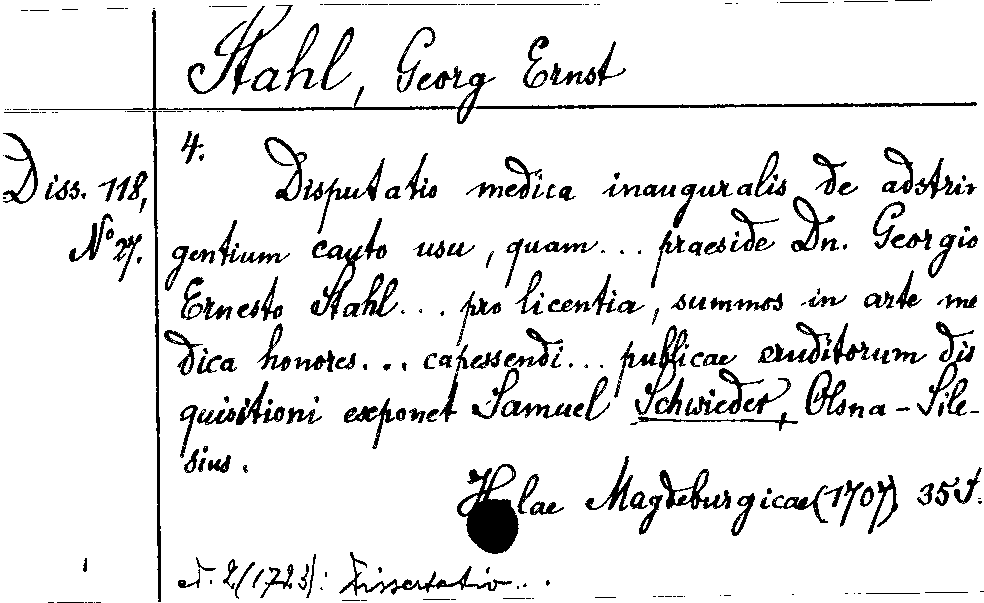 Stahl, Georg Ernst
4.
Diss. 118,
N° 27.
Disputatio medica inauguralis de adstrin
gentium cauto usu, quam... praeside Dn. Georgio
Ernesto Stahl... pro licentia, summos in arte me
dica honores... capessendi... publicae eruditorum dis
quisitioni exponet Samuel Schwieder, Olsna-Sile-
sius.
Halae Magdeburgicae (1707) 35 S.
2 (1723): Dissertatio...